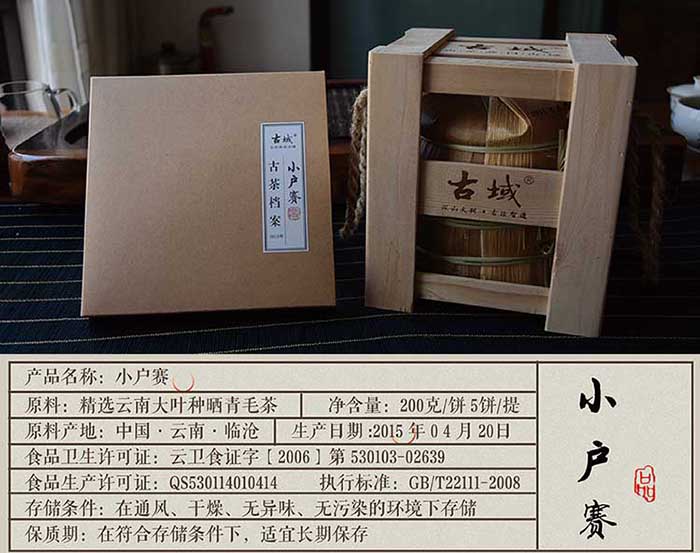 古域®
小户赛
古茶档案
古域
古域®
产品名称：小户赛
原料：精选云南大叶种晒青毛茶
净含量：200克/饼 5饼/提
原料产地：中国·云南·临沧
生产日期:2015 年 0 4 月 20日
食品卫生许可证：云卫食证字［2006］第 530103-02639
食品生产许可证：QS530114010414
执行标准：GB/T22111-2008
存储条件：在通风、干燥、无异味、无污染的环境下存储
保质期：在符合存储条件下，适宜长期保存
小户赛
品